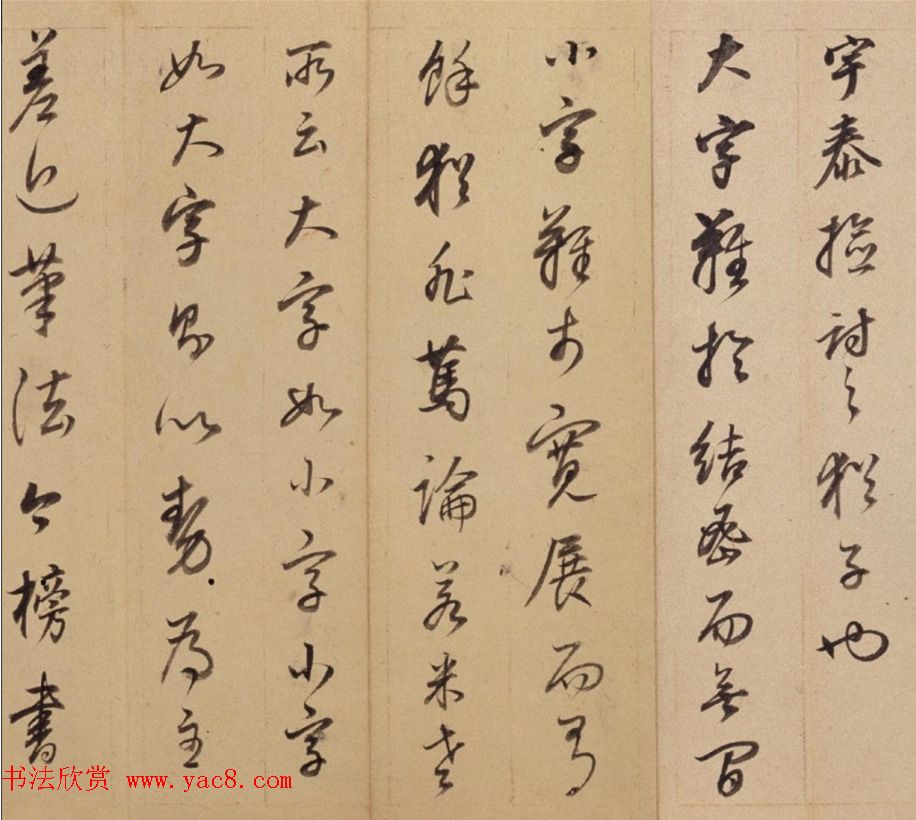 宇泰检討之猶子也
大字難於結密而無間
小字難於寬展而有
餘猶非篤論若米老
所云大字如小字小字
如大字則以勢為主
差近筆法今榜書
书法欣赏 www.yac8.com